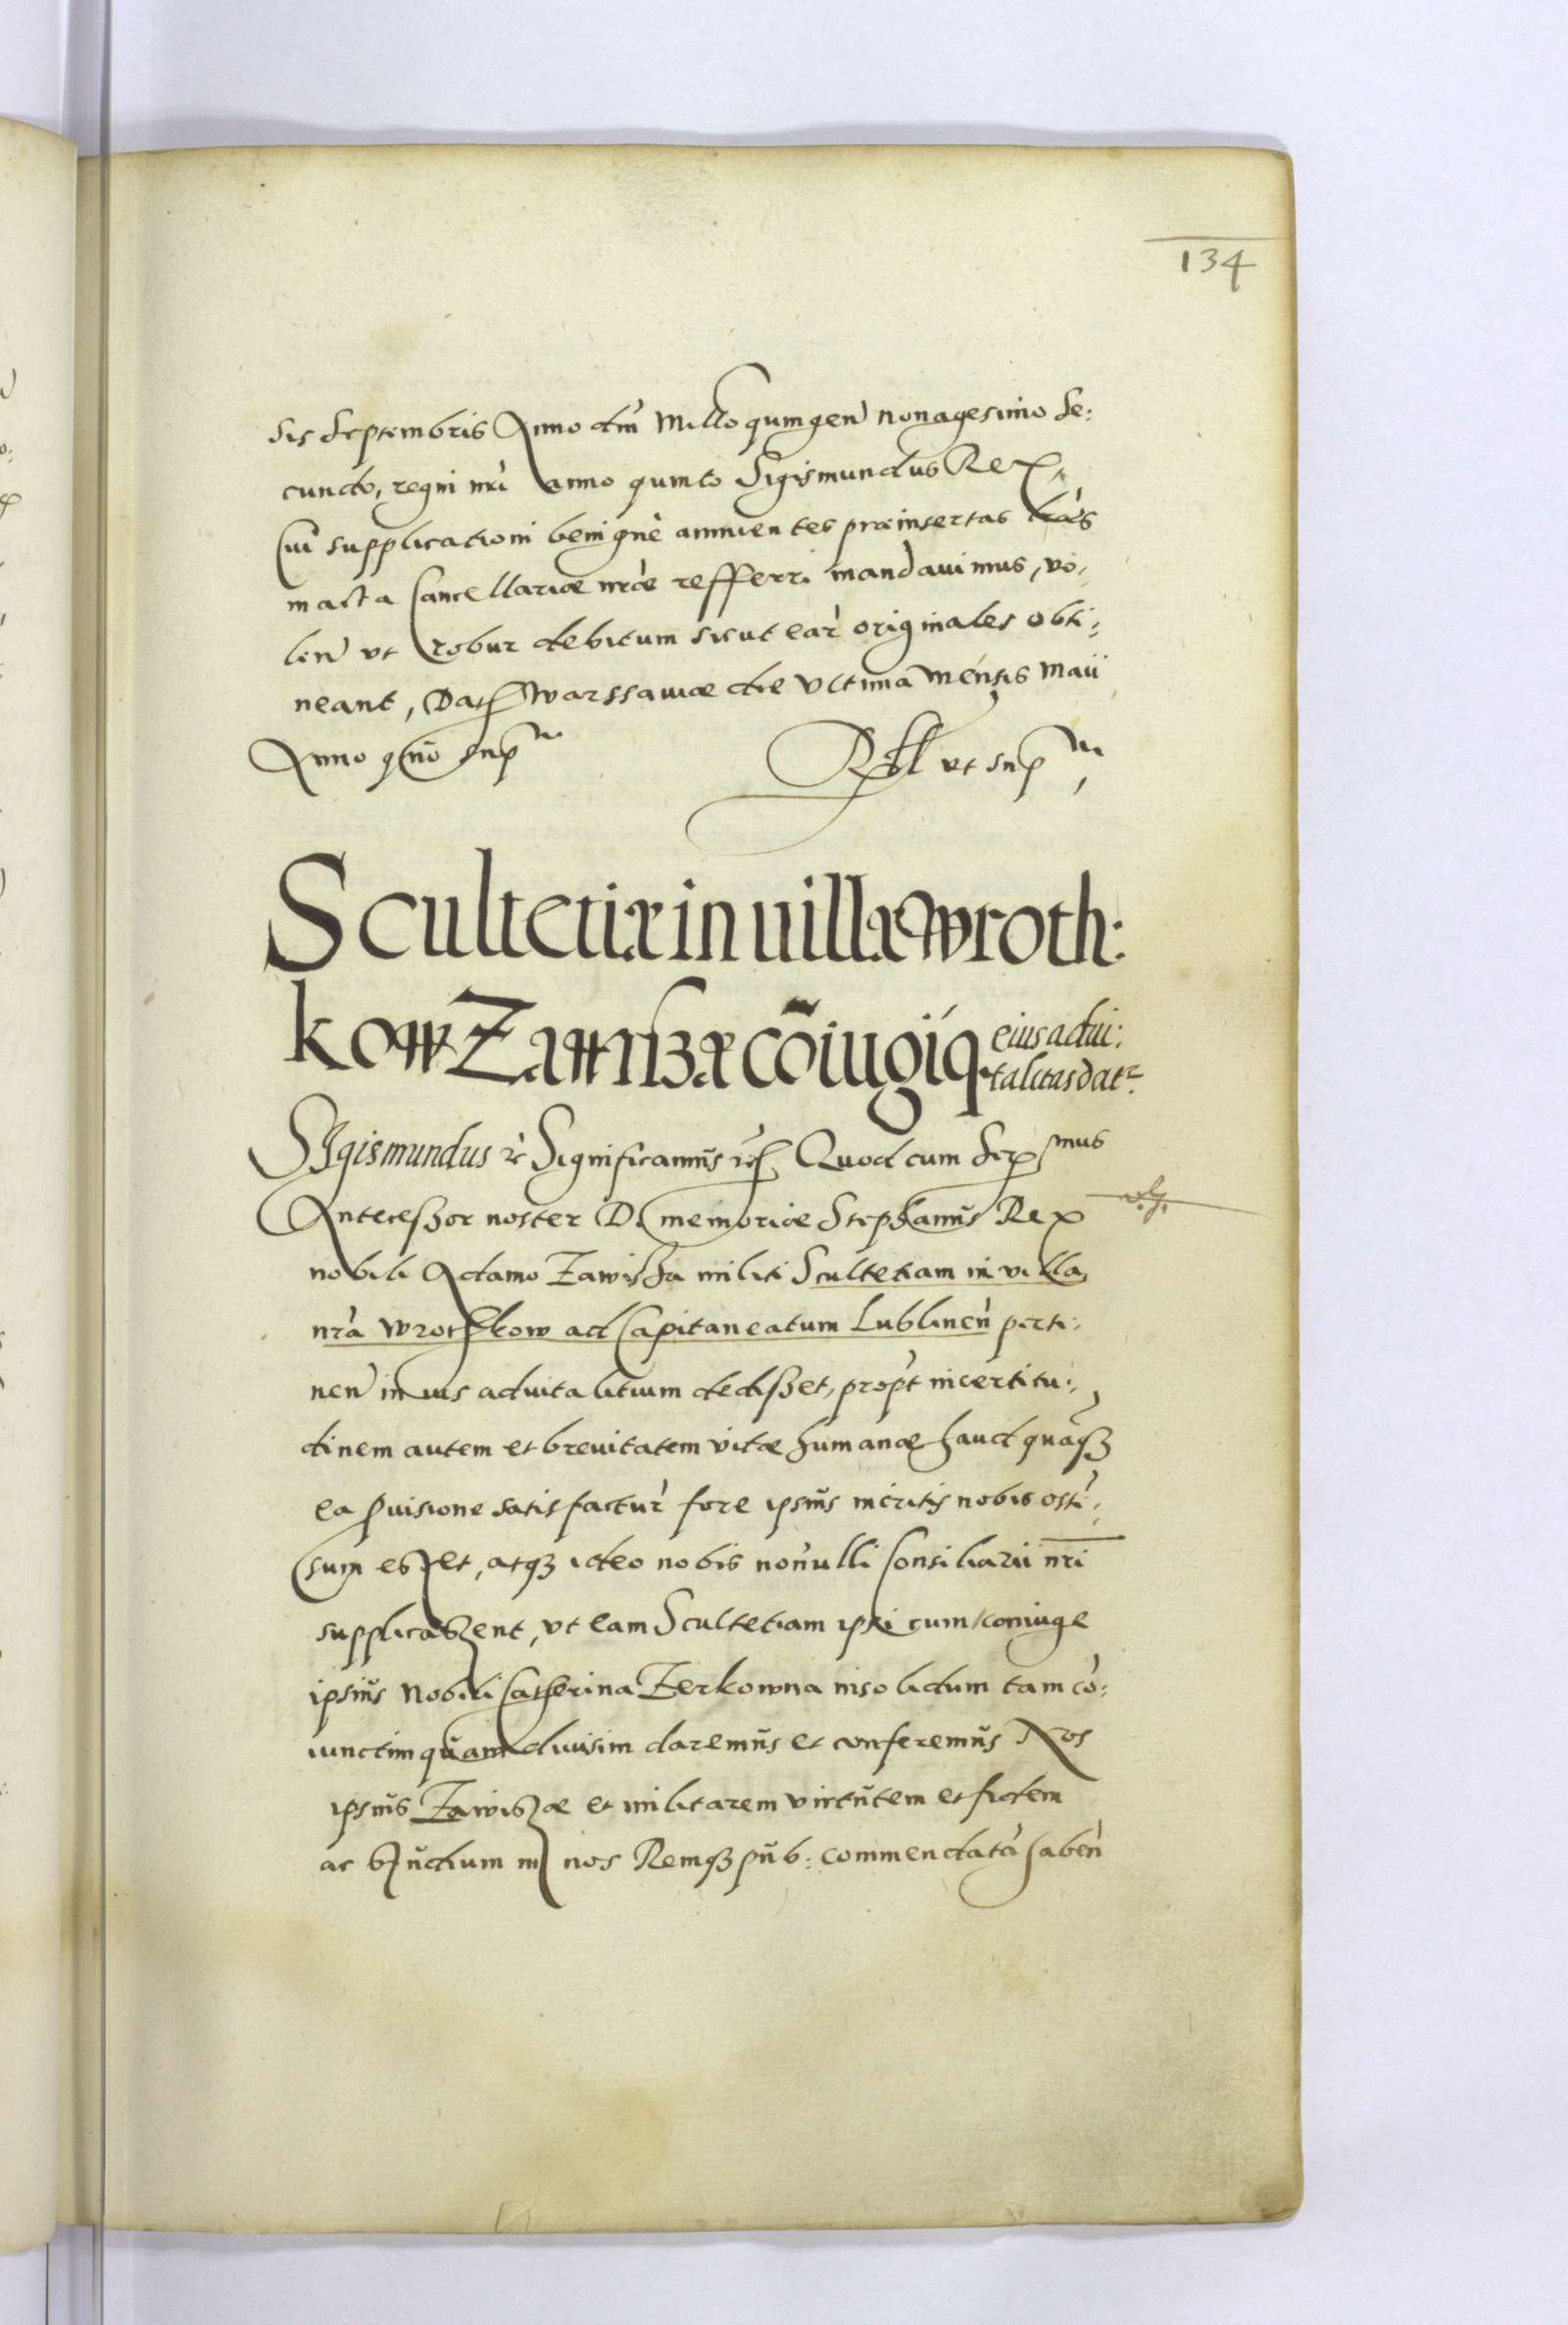 134
sis Septembris Anno dni Millo quingen nonagesimo se:
cundo, regni nri anno quinto Sigismundus Rex,
Cui supplicationi benigne annuentes præinsertas lras
in acta Cancellariæ nræ refferri mandauimus, vo:
len vt robur debitum sicut ear originales obti:
neant, Dat Warssauiæ die vltima mensis Maii
Anno quo sup
Rel vt sup
Scultetiæ in uilla Wroth:
kow Zawiszæ cõiugiq
eius adui:
talitas dat
SIgismundus rc Significamus rc Quod cum Ser mus
Anteceszor noster D. memoriæ Stephanus Rex
nobili Adamo Zawisza militi Scultetiam in villa
nra Wrothkow ad Capitaneatum Lublinen perti:
nen in ius aduitalitium dediszet, propt incertitu:
dinem autem et breuitatem vitæ humanæ haud quaqz
ea puisione satisfactur fore ipsius meritis nobis osten:
sum eszet, atqz ideo nobis nonulli Consiliarii nri
supplicaszent, vt eam Scultetiam ipsi cum coniuge
ipsius Nobili Catherina Zerkowna insolidum tam co:
iunctim quam diuisim daremus et conferemus Nos
ipsius Zawiszæ et militarem virtutem et fidem
ac studium in nos Remqz pub: commendata haben